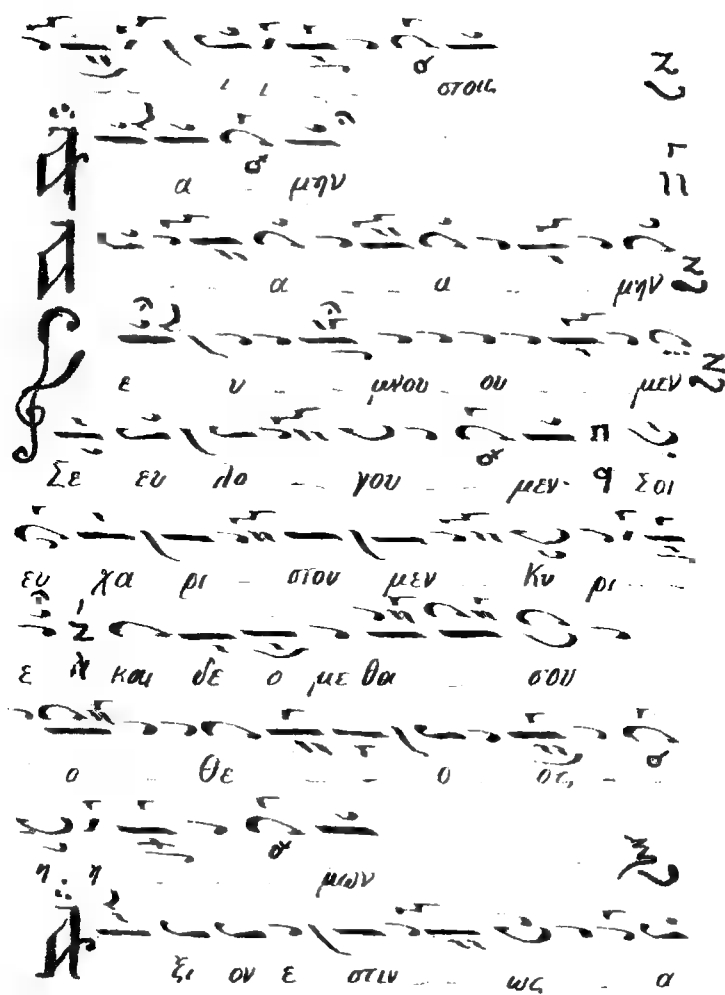 ι ι στοις
α μην
α α μην
ε υ μνου ου μεν
Σε ευ λο γου μεν· Σοι
ευ χα ρι στου μεν Κυ ρι
ε και δε ο με θα σου
ο Θε ο ος, —
η η μων
Α ξι ον ε στιν ως α